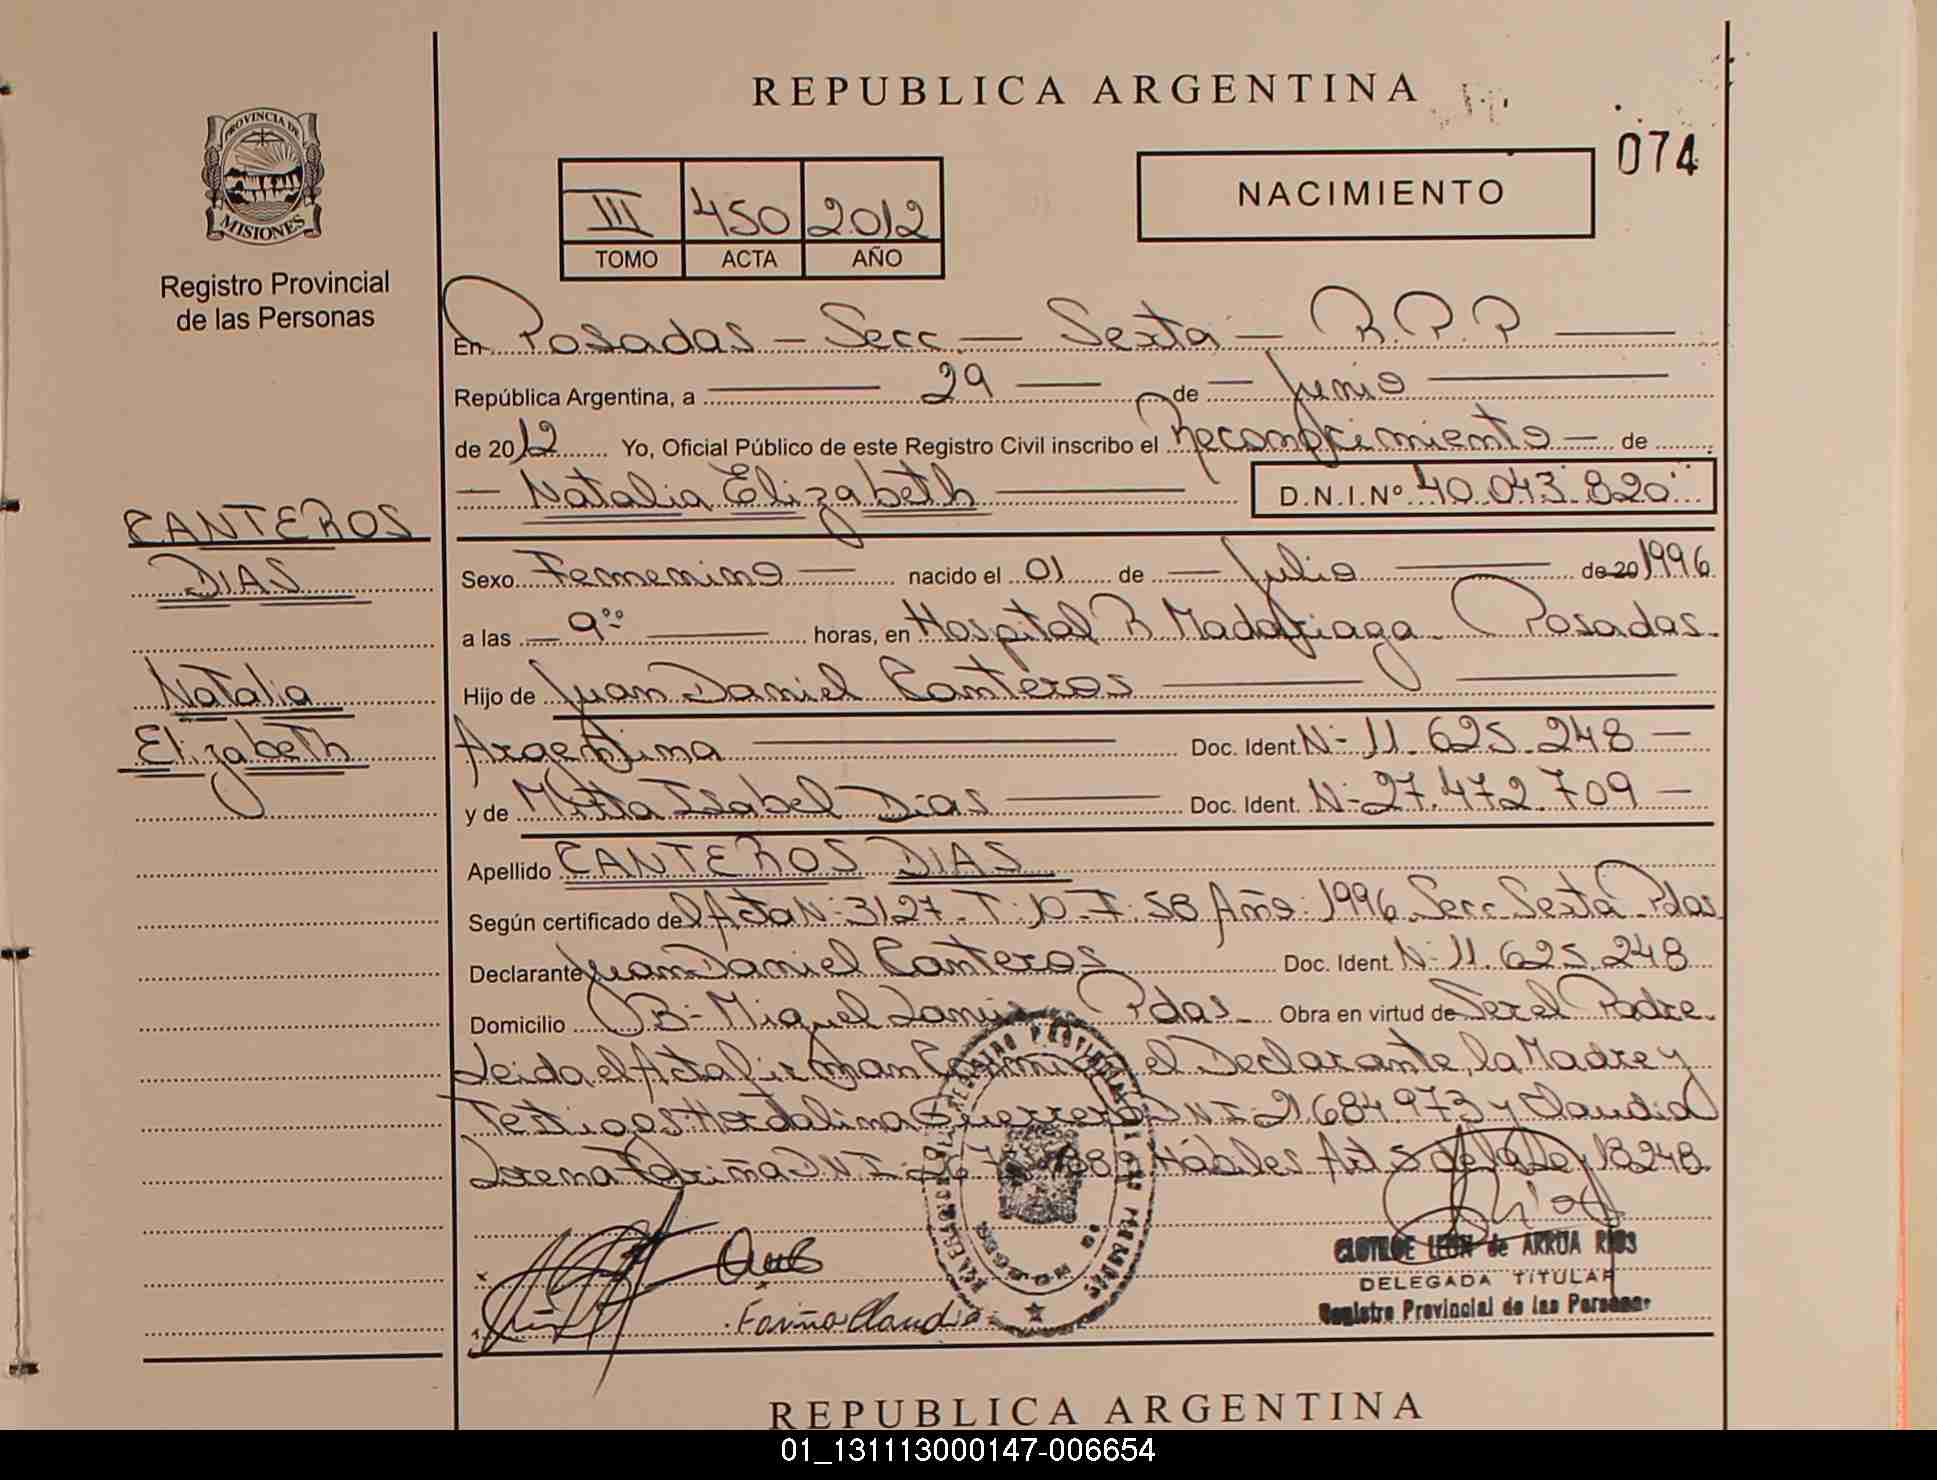 REPUBLICA ARGENTINA
074
PROVINCIA DE
MISIONES
Registro Provincial
de las Personas
III 450 2012
TOMO ACTA AÑO
NACIMIENTO
En Posadas - Secc - Sexta - R.P.P
República Argentina, a 29 de Junio
de 2012 Yo, Oficial Público de este Registro Civil inscribo el Reconocimiento de
Natalia Elizabeth D.N.I.Nº 40.043.820
CANTEROS
DIAS
Natalia
Elizabeth
Sexo Femenino nacido el 01 de Julio de 20 1996
a las 9 horas, en Hospital R Madariaga Posadas
Hijo de Juan Daniel Canteros
Argentina Doc. Ident. N- 11.625.248
y de Isabel Dias Doc. Ident. N- 27.472.709
Apellido CANTEROS DIAS
Según certificado del Acta N- 3127 T 10 F 58 Año 1996 Secc Sexta Pdas
Declarante Juan Daniel Canteros Doc. Ident. N- 11.625.248
Domicilio B- Miguel Pdas Obra en virtud de Ser el Padre
Leida el Acta firman el Declarante, la Madre y
Testigos Guerrero D N I 21.684.973 y Claudia
Lorena Fariña D N I Hábiles Art 5 de la Ley 18248
Fariña Claudia
CLOTILDE LEON de ARRUA RIOS
DELEGADA TITULAR
Registro Provincial de las Personas
REPUBLICA ARGENTINA
01_131113000147-006654